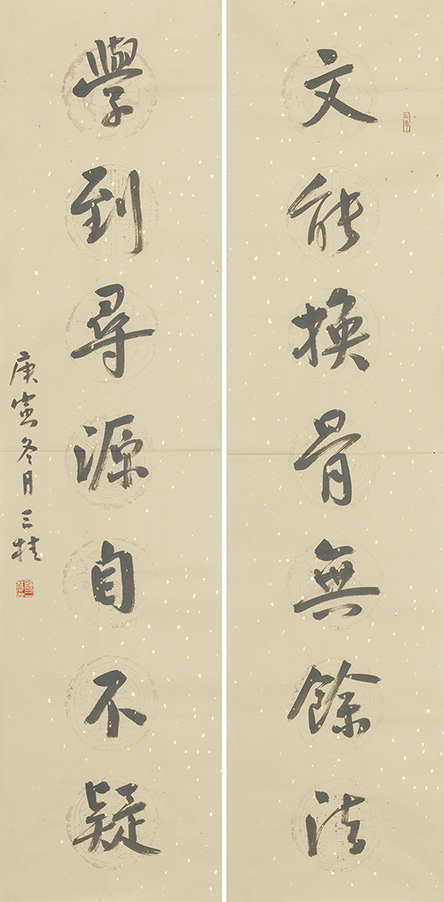 文能換骨無餘法
學到尋源自不疑
庚寅冬月三桂